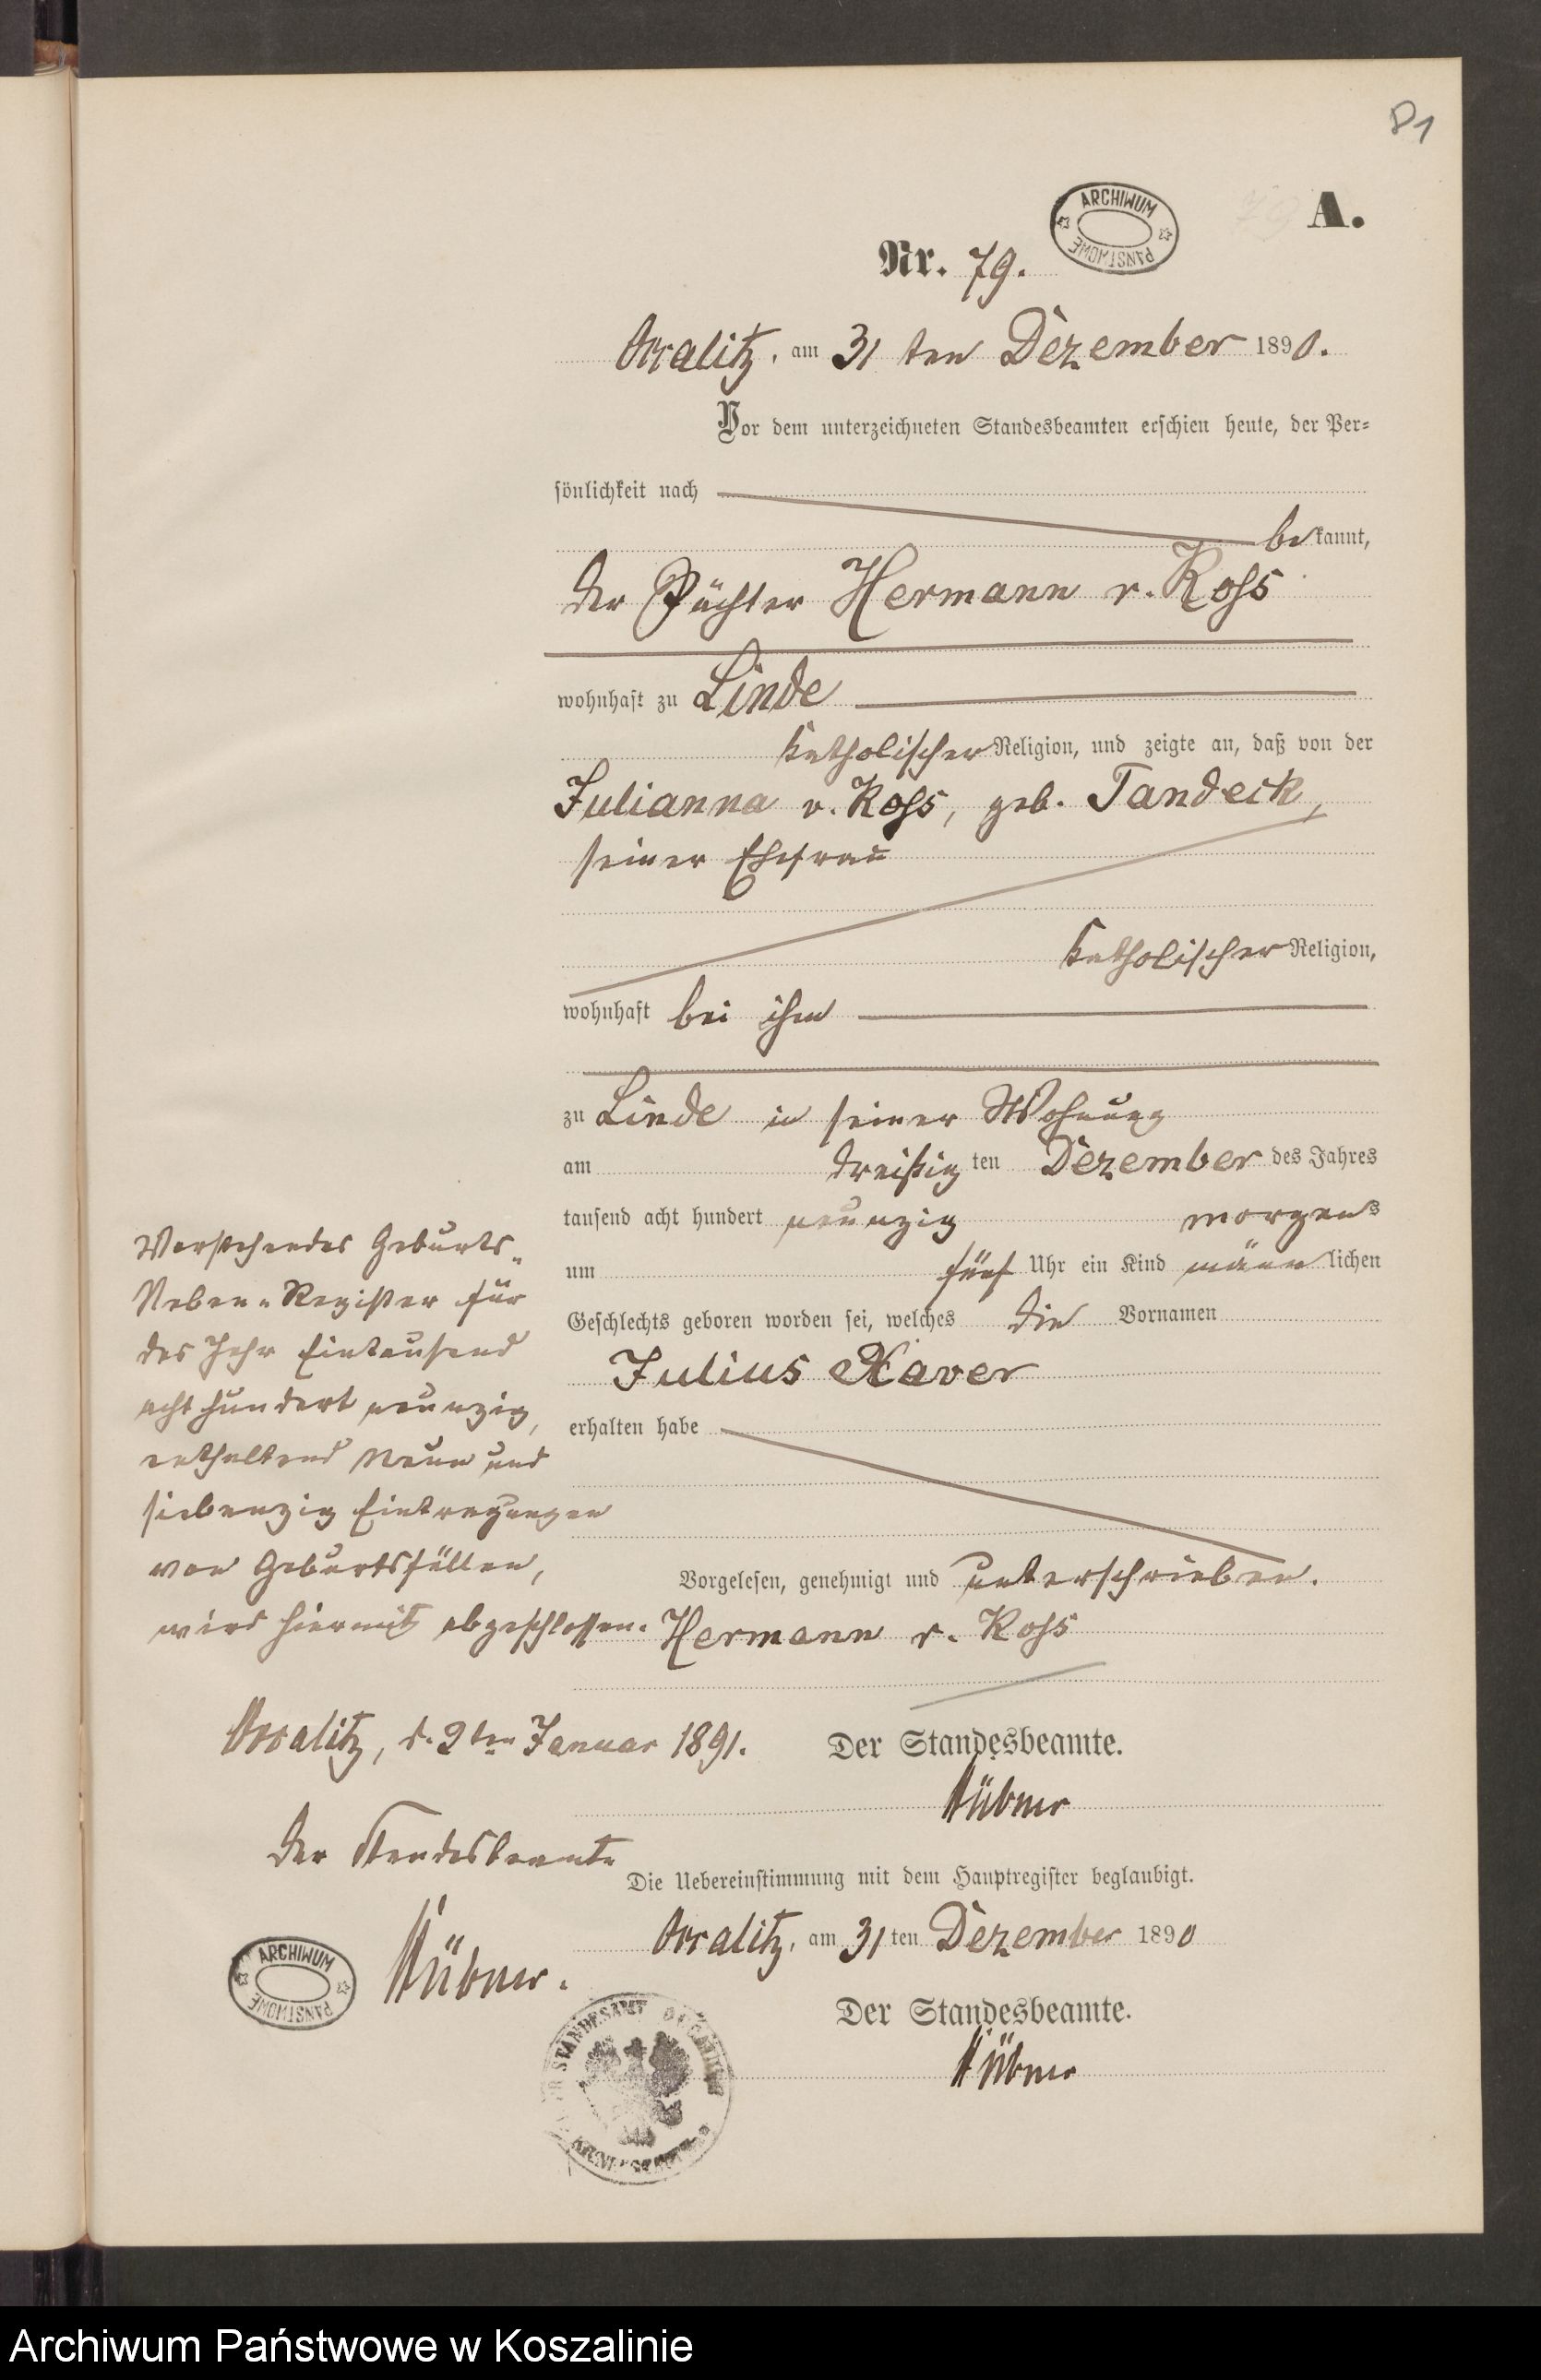 81
A.
Nr. 79.
ARCHIWUM PAŃSTWOWE
Occalitz, am 31 ten Dezember 1890.
Vor dem unterzeichneten Standesbeamten erschien heute, der Per=
sönlichkeit nach
bekannt,
der Pächter Hermann v. Koss
wohnhaft zu Linde
katholischer Religion, und zeigte an, daß von der
Julianna v. Koss, geb. Tandeck,
seiner Ehefrau
katholischer Religion,
wohnhaft bei ihm
zu Linde in seiner Wohnung
am dreißig ten Dezember des Jahres
tausend acht hundert neunzig morgens
um fünf Uhr ein Kind männlichen
Geschlechts geboren worden sei, welches die Vornamen
Julius Xaver
erhalten habe
Vorgelesen, genehmigt und unterschrieben.
Hermann v. Koss
Der Standesbeamte.
Hübner
Die Uebereinstimmung mit dem Hauptregister beglaubigt.
Occalitz, am 31 ten Dezember 1890
Der Standesbeamte.
Hübner
Vorstehendes Geburts-
Neben-Register für
das Jahr Eintausend
acht hundert neunzig,
enthaltend Neun und
siebenzig Eintragungen
von Geburtsfällen,
wird hiermit abgeschlossen.
Occalitz, d. 2ten Januar 1891.
Der Standesbeamte
Hübner.
ARCHIWUM PAŃSTWOWE
STANDESAMT
Archiwum Państwowe w Koszalinie